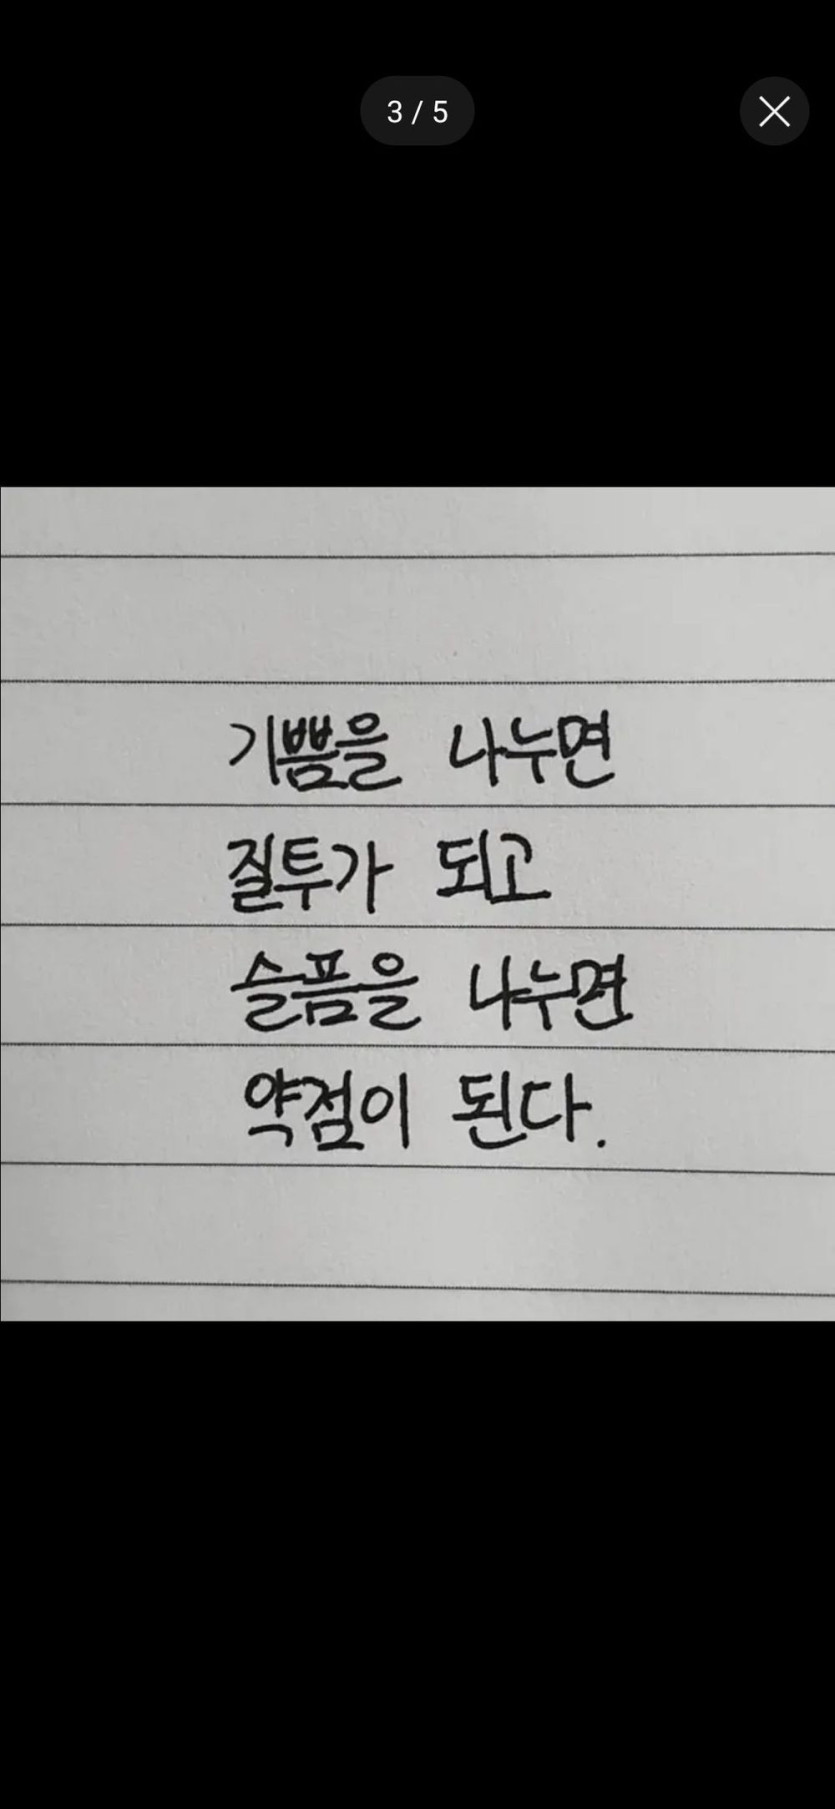 3 / 5
기쁨을 나누면
질투가 되고
슬픔을 나누면
약점이 된다.